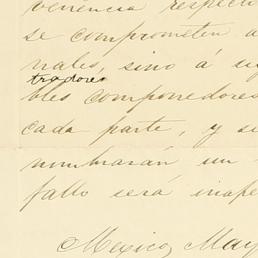 venencia respecto
se comprometen a
nales, sino á
tradores
bles componedores
cada parte, y si
nombrarán un
fallo será inape
Mexico, May